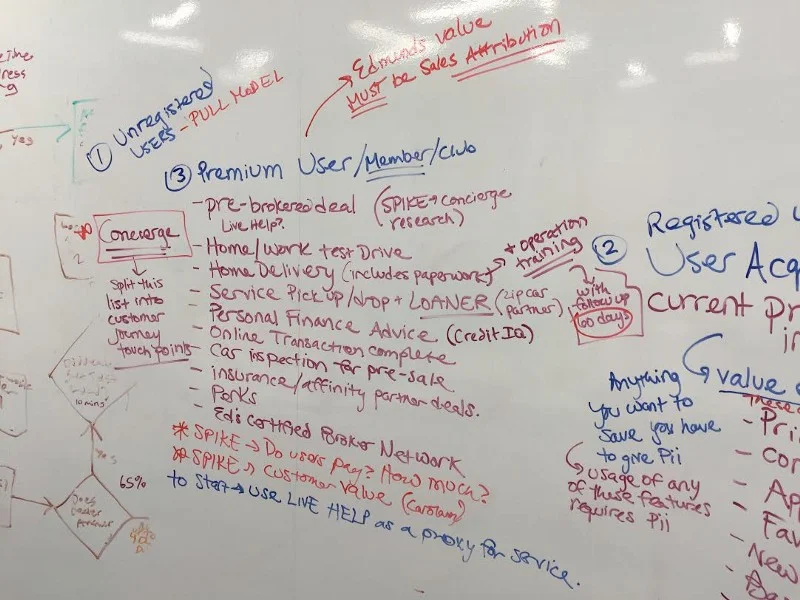 Edmunds value
MUST be Sales Attribution
① Unregistered
USERS - PULL MODEL
Yes
③ Premium User/Member/Club
- pre-brokered deal (SPIKE → concierge
research)
Live Help?
Concierge
Split this
list into
customer
journey
touch points
- Home/work test Drive
- Home Delivery (includes paperwork) → + operation
training
- Service Pick up/drop + LOANER (zipcar
partner)
- Personal Finance Advice (Credit IQ)
- Online Transaction complete
- Car inspection for pre-sale
- insurance/affinity partner deals.
- Perks
- Ed's certified Broker Network
* SPIKE → Do users pay? How much?
* SPIKE → Customer Value
to start → use LIVE HELP as a proxy for service.
with
follow up
60 days
② Registered
User Acq
current Pr
in
value
Anything
you want to
save you have
to give Pii
usage of any
of these features
requires Pii
These
- Pri
- Con
- App
- Fav
- New
10 mins
Yes
65%
Does